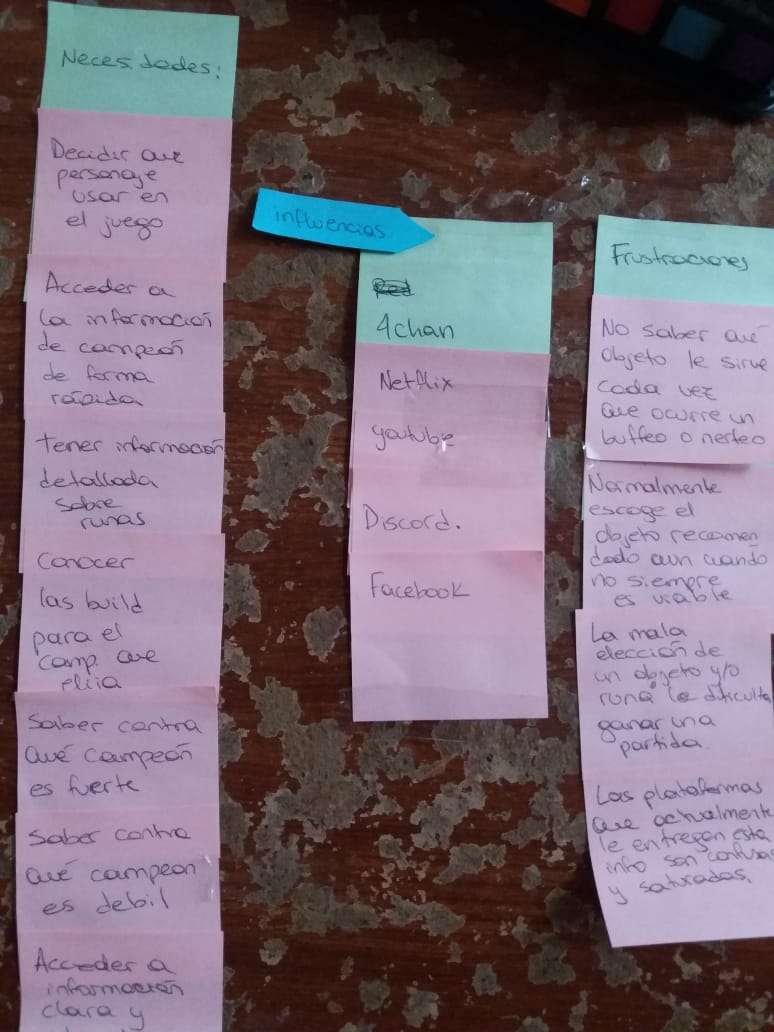 Necesidades:
Decidir que
personaje
usar en
el juego
Acceder a
la información
de campeón
de forma
rápida
tener información
detallada
sobre
runas
Conocer
las build
para el
camp. que
elija
Saber contra
qué campeón
es fuerte
Saber contra
qué campeon
es debil
Acceder a
información
clara y
influencias
4chan
Netflix
youtube
Discord.
Facebook
Frustraciones
No saber qué
objeto le sirve
cada vez
que ocurre un
buffeo o nerfeo
Normalmente
escoge el
objeto recomen
dado aun cuando
no siempre
es viable
La mala
elección de
un objeto y/o
runa le dificulta
ganar una
partida.
Las plataformas
que actualmente
le entregan esta
info son confusas
y saturadas.